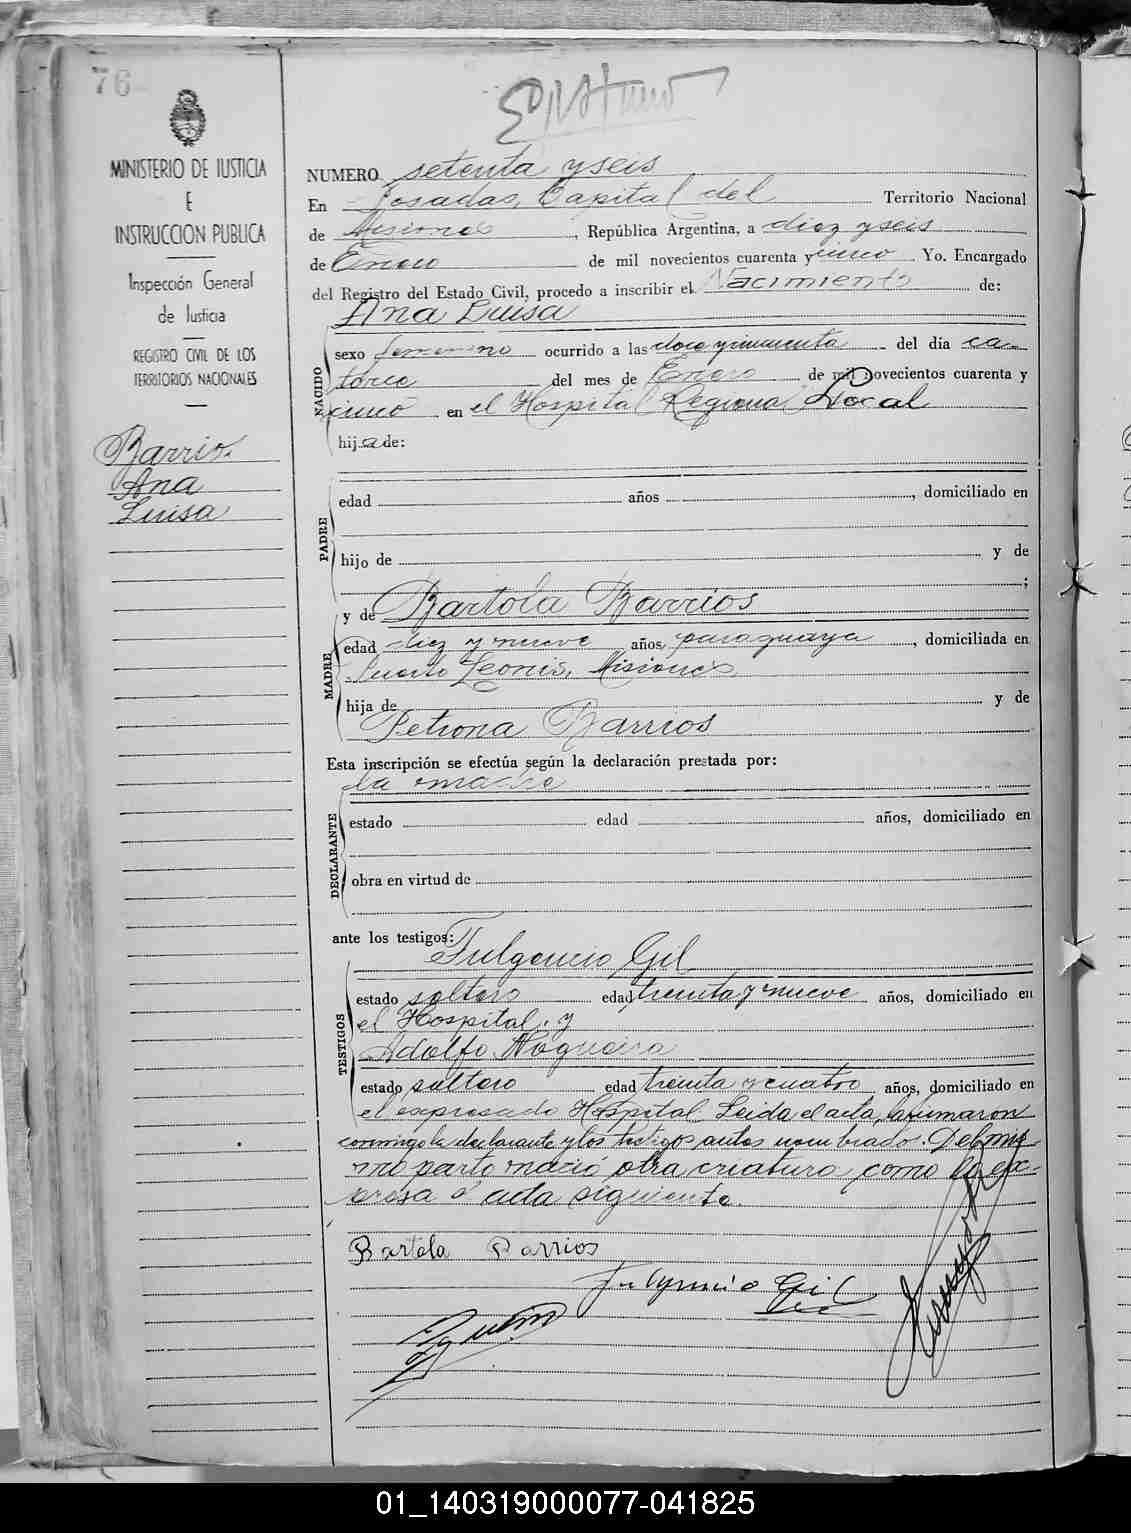 76
MINISTERIO DE JUSTICIA
E
INSTRUCCION PUBLICA
Inspección General
de Justicia
REGISTRO CIVIL DE LOS
TERRITORIOS NACIONALES
Barrios
Ana
Luisa
NUMERO setenta y seis
En Posadas, Capital del Territorio Nacional
de Misiones, República Argentina, a diez y seis
de Enero de mil novecientos cuarenta y cinco Yo. Encargado
del Registro del Estado Civil, procedo a inscribir el Nacimiento de:
Ana Luisa
NACIDO
sexo femenino ocurrido a las doce y cincuenta del día ca-
torce del mes de Enero de mil novecientos cuarenta y
cinco en el Hospital Regional Local
hija de:
PADRE
edad años , domiciliado en
hijo de y de
;
y de Bartola Barrios
MADRE
edad diez y nueve años, paraguaya, domiciliada en
Puerto Leonis, Misiones
hija de y de
Petrona Barrios
Esta inscripción se efectúa según la declaración prestada por:
la madre
DECLARANTE
estado edad años, domiciliado en
obra en virtud de
ante los testigos: Fulgencio Gil
TESTIGOS
estado soltero edad treinta y nueve años, domiciliado en
el Hospital y
Adolfo Nogueira
estado soltero edad treinta y cuatro años, domiciliado en
el expresado Hospital. Leida el acta, la firmaron
conmigo la declarante y los testigos antes nombrados. Del mis-
mo parto nació otra criatura como lo ex-
presa el acta siguiente.
Bartola Barrios
Fulgencio Gil
01_140319000077-041825